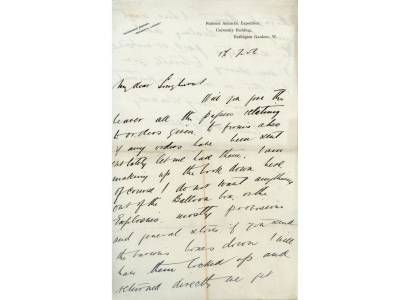 National Antarctic Expedition,
University Building,
Burlington Gardens, W.
My dear Longhurst
Will you give the
bearer all the papers relating
to orders given to firms also
if any orders have been sent
out lately let me have them. I am
making up the book down here
of course I do not want anything
out of the Balloon box or the
Explosives mostly provisions
and general stores if you send
the various boxes down I will
have them locked up and
returned directly we get